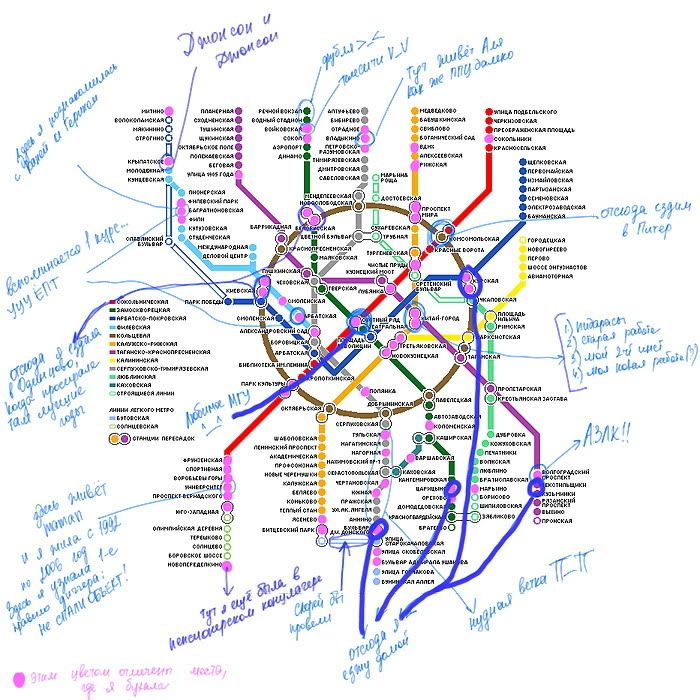 Джонсон и
Джонсон
дубля >_<
таксити V_V
Тут живёт Аля
как же ППЦ далеко
Здесь я познакомилась
с Ваней и Герином
МИТИНО
ВОЛОКОЛАМСКАЯ
МЯКИНИНО
СТРОГИНО
КРЫЛАТСКОЕ
МОЛОДЕЖНАЯ
КУНЦЕВСКАЯ
ПИОНЕРСКАЯ
ФИЛЕВСКИЙ ПАРК
БАГРАТИОНОВСКАЯ
ФИЛИ
КУТУЗОВСКАЯ
СТУДЕНЧЕСКАЯ
СЛАВЯНСКИЙ
БУЛЬВАР
МЕЖДУНАРОДНАЯ
ДЕЛОВОЙ ЦЕНТР
КИЕВСКАЯ
ПАРК ПОБЕДЫ
ПЛАНЕРНАЯ
СХОДНЕНСКАЯ
ТУШИНСКАЯ
ЩУКИНСКАЯ
ОКТЯБРЬСКОЕ ПОЛЕ
ПОЛЕЖАЕВСКАЯ
БЕГОВАЯ
УЛИЦА 1905 ГОДА
БАРРИКАДНАЯ
РЕЧНОЙ ВОКЗАЛ
ВОДНЫЙ СТАДИОН
ВОЙКОВСКАЯ
СОКОЛ
АЭРОПОРТ
ДИНАМО
БЕЛОРУССКАЯ
АЛТУФЬЕВО
БИБИРЕВО
ОТРАДНОЕ
ВЛАДЫКИНО
ПЕТРОВСКО-
РАЗУМОВСКАЯ
ТИМИРЯЗЕВСКАЯ
ДМИТРОВСКАЯ
САВЕЛОВСКАЯ
МЕНДЕЛЕЕВСКАЯ
НОВОСЛОБОДСКАЯ
МАРЬИНА
РОЩА
ДОСТОЕВСКАЯ
МЕДВЕДКОВО
БАБУШКИНСКАЯ
СВИБЛОВО
БОТАНИЧЕСКИЙ САД
ВДНХ
АЛЕКСЕЕВСКАЯ
РИЖСКАЯ
ПРОСПЕКТ
МИРА
УЛИЦА ПОДБЕЛЬСКОГО
ЧЕРКИЗОВСКАЯ
ПРЕОБРАЖЕНСКАЯ ПЛОЩАДЬ
СОКОЛЬНИКИ
КРАСНОСЕЛЬСКАЯ
КОМСОМОЛЬСКАЯ
КРАСНЫЕ ВОРОТА
ЩЕЛКОВСКАЯ
ПЕРВОМАЙСКАЯ
ИЗМАЙЛОВСКАЯ
ПАРТИЗАНСКАЯ
СЕМЕНОВСКАЯ
ЭЛЕКТРОЗАВОДСКАЯ
БАУМАНСКАЯ
НОВОГИРЕЕВО
ПЕРОВО
ШОССЕ ЭНТУЗИАСТОВ
АВИАМОТОРНАЯ
отсюда ездим
в Питер
вспоминается 1 курс...
Ууу ЕПТ
ЦВЕТНОЙ БУЛЬВАР
СУХАРЕВСКАЯ
ТРУБНАЯ
КРАСНОПРЕСНЕНСКАЯ
МАЯКОВСКАЯ
ПУШКИНСКАЯ
ЧЕХОВСКАЯ
ТВЕРСКАЯ
КУЗНЕЦКИЙ МОСТ
ЛУБЯНКА
ТУРГЕНЕВСКАЯ
ЧИСТЫЕ ПРУДЫ
СРЕТЕНСКИЙ
БУЛЬВАР
КУРСКАЯ
ЧКАЛОВСКАЯ
ПЛОЩАДЬ
ИЛЬИЧА
РИМСКАЯ
СМОЛЕНСКАЯ
АРБАТСКАЯ
СМОЛЕНСКАЯ
АЛЕКСАНДРОВСКИЙ САД
БОРОВИЦКАЯ
АРБАТСКАЯ
БИБЛИОТЕКА ИМ.ЛЕНИНА
КРОПОТКИНСКАЯ
ПАРК КУЛЬТУРЫ
ОХОТНЫЙ РЯД
ТЕАТРАЛЬНАЯ
ПЛОЩАДЬ
РЕВОЛЮЦИИ
КИТАЙ-ГОРОД
ТРЕТЬЯКОВСКАЯ
НОВОКУЗНЕЦКАЯ
МАРКСИСТСКАЯ
ТАГАНСКАЯ
ПОЛЯНКА
ОКТЯБРЬСКАЯ
ДОБРЫНИНСКАЯ
СЕРПУХОВСКАЯ
ПАВЕЛЕЦКАЯ
ПРОЛЕТАРСКАЯ
КРЕСТЬЯНСКАЯ ЗАСТАВА
СОКОЛЬНИЧЕСКАЯ
ЗАМОСКВОРЕЦКАЯ
АРБАТСКО-ПОКРОВСКАЯ
ФИЛЕВСКАЯ
КОЛЬЦЕВАЯ
КАЛУЖСКО-РИЖСКАЯ
ТАГАНСКО-КРАСНОПРЕСНЕНСКАЯ
КАЛИНИНСКАЯ
СЕРПУХОВСКО-ТИМИРЯЗЕВСКАЯ
ЛЮБЛИНСКАЯ
КАХОВСКАЯ
СТРОЯЩИЕСЯ ЛИНИИ
ЛИНИИ ЛЕГКОГО МЕТРО
БУТОВСКАЯ
СОЛНЦЕВСКАЯ
СТАНЦИИ ПЕРЕСАДОК
отсюда я
в Одинцово ездила
когда проседала
там лучшие
годы
Любимое МГУ
^_^
1) пидарасы
2) старая работа
3) мой 2-й инст
4) моя новая работа(?)
АЗЛК!!
ФРУНЗЕНСКАЯ
СПОРТИВНАЯ
ВОРОБЬЕВЫ ГОРЫ
УНИВЕРСИТЕТ
ПРОСПЕКТ ВЕРНАДСКОГО
ЮГО-ЗАПАДНАЯ
ОЛИМПИЙСКАЯ ДЕРЕВНЯ
ТЕРЕШКОВО
СОЛНЦЕВО
БОРОВСКОЕ ШОССЕ
НОВОПЕРЕДЕЛКИНО
ШАБОЛОВСКАЯ
ЛЕНИНСКИЙ ПРОСПЕКТ
АКАДЕМИЧЕСКАЯ
ПРОФСОЮЗНАЯ
НОВЫЕ ЧЕРЕМУШКИ
КАЛУЖСКАЯ
БЕЛЯЕВО
КОНЬКОВО
ТЕПЛЫЙ СТАН
ЯСЕНЕВО
БИТЦЕВСКИЙ ПАРК
ТУЛЬСКАЯ
НАГАТИНСКАЯ
НАГОРНАЯ
НАХИМОВСКИЙ ПР.
СЕВАСТОПОЛЬСКАЯ
ЧЕРТАНОВСКАЯ
ЮЖНАЯ
ПРАЖСКАЯ
УЛ.АК.ЯНГЕЛЯ
АННИНО
БУЛЬВАР
ДМ. ДОНСКОГО
УЛИЦА
СТАРОКАЧАЛОВСКАЯ
УЛИЦА СКОБЕЛЕВСКАЯ
БУЛЬВАР АДМИРАЛА УШАКОВА
УЛИЦА ГОРЧАКОВА
БУНИНСКАЯ АЛЛЕЯ
АВТОЗАВОДСКАЯ
КОЛОМЕНСКАЯ
КАШИРСКАЯ
ВАРШАВСКАЯ
КАХОВСКАЯ
КАНТЕМИРОВСКАЯ
ЦАРИЦЫНО
ОРЕХОВО
ДОМОДЕДОВСКАЯ
КРАСНОГВАРДЕЙСКАЯ
БРАТЕЕВО
ДУБРОВКА
КОЖУХОВСКАЯ
ПЕЧАТНИКИ
ВОЛЖСКАЯ
ЛЮБЛИНО
БРАТИСЛАВСКАЯ
МАРЬИНО
БОРИСОВО
ШИПИЛОВСКАЯ
ЗЯБЛИКОВО
ВОЛГОГРАДСКИЙ
ПРОСПЕКТ
ТЕКСТИЛЬЩИКИ
КУЗЬМИНКИ
РЯЗАНСКИЙ
ПРОСПЕКТ
ВЫХИНО
ПРОНСКАЯ
здесь живёт
маман
и я жила с 1992
по 2006 год
Здесь я узнала 1-е
НЕ СПАЛИ ОБЪЕКТ!
Тут я ещё была в
пенсионерском концлагере
Скорей бы
провели
отсюда я
езжу домой
нудная ветка П_П
этим цветом отмечено места,
где я бухала